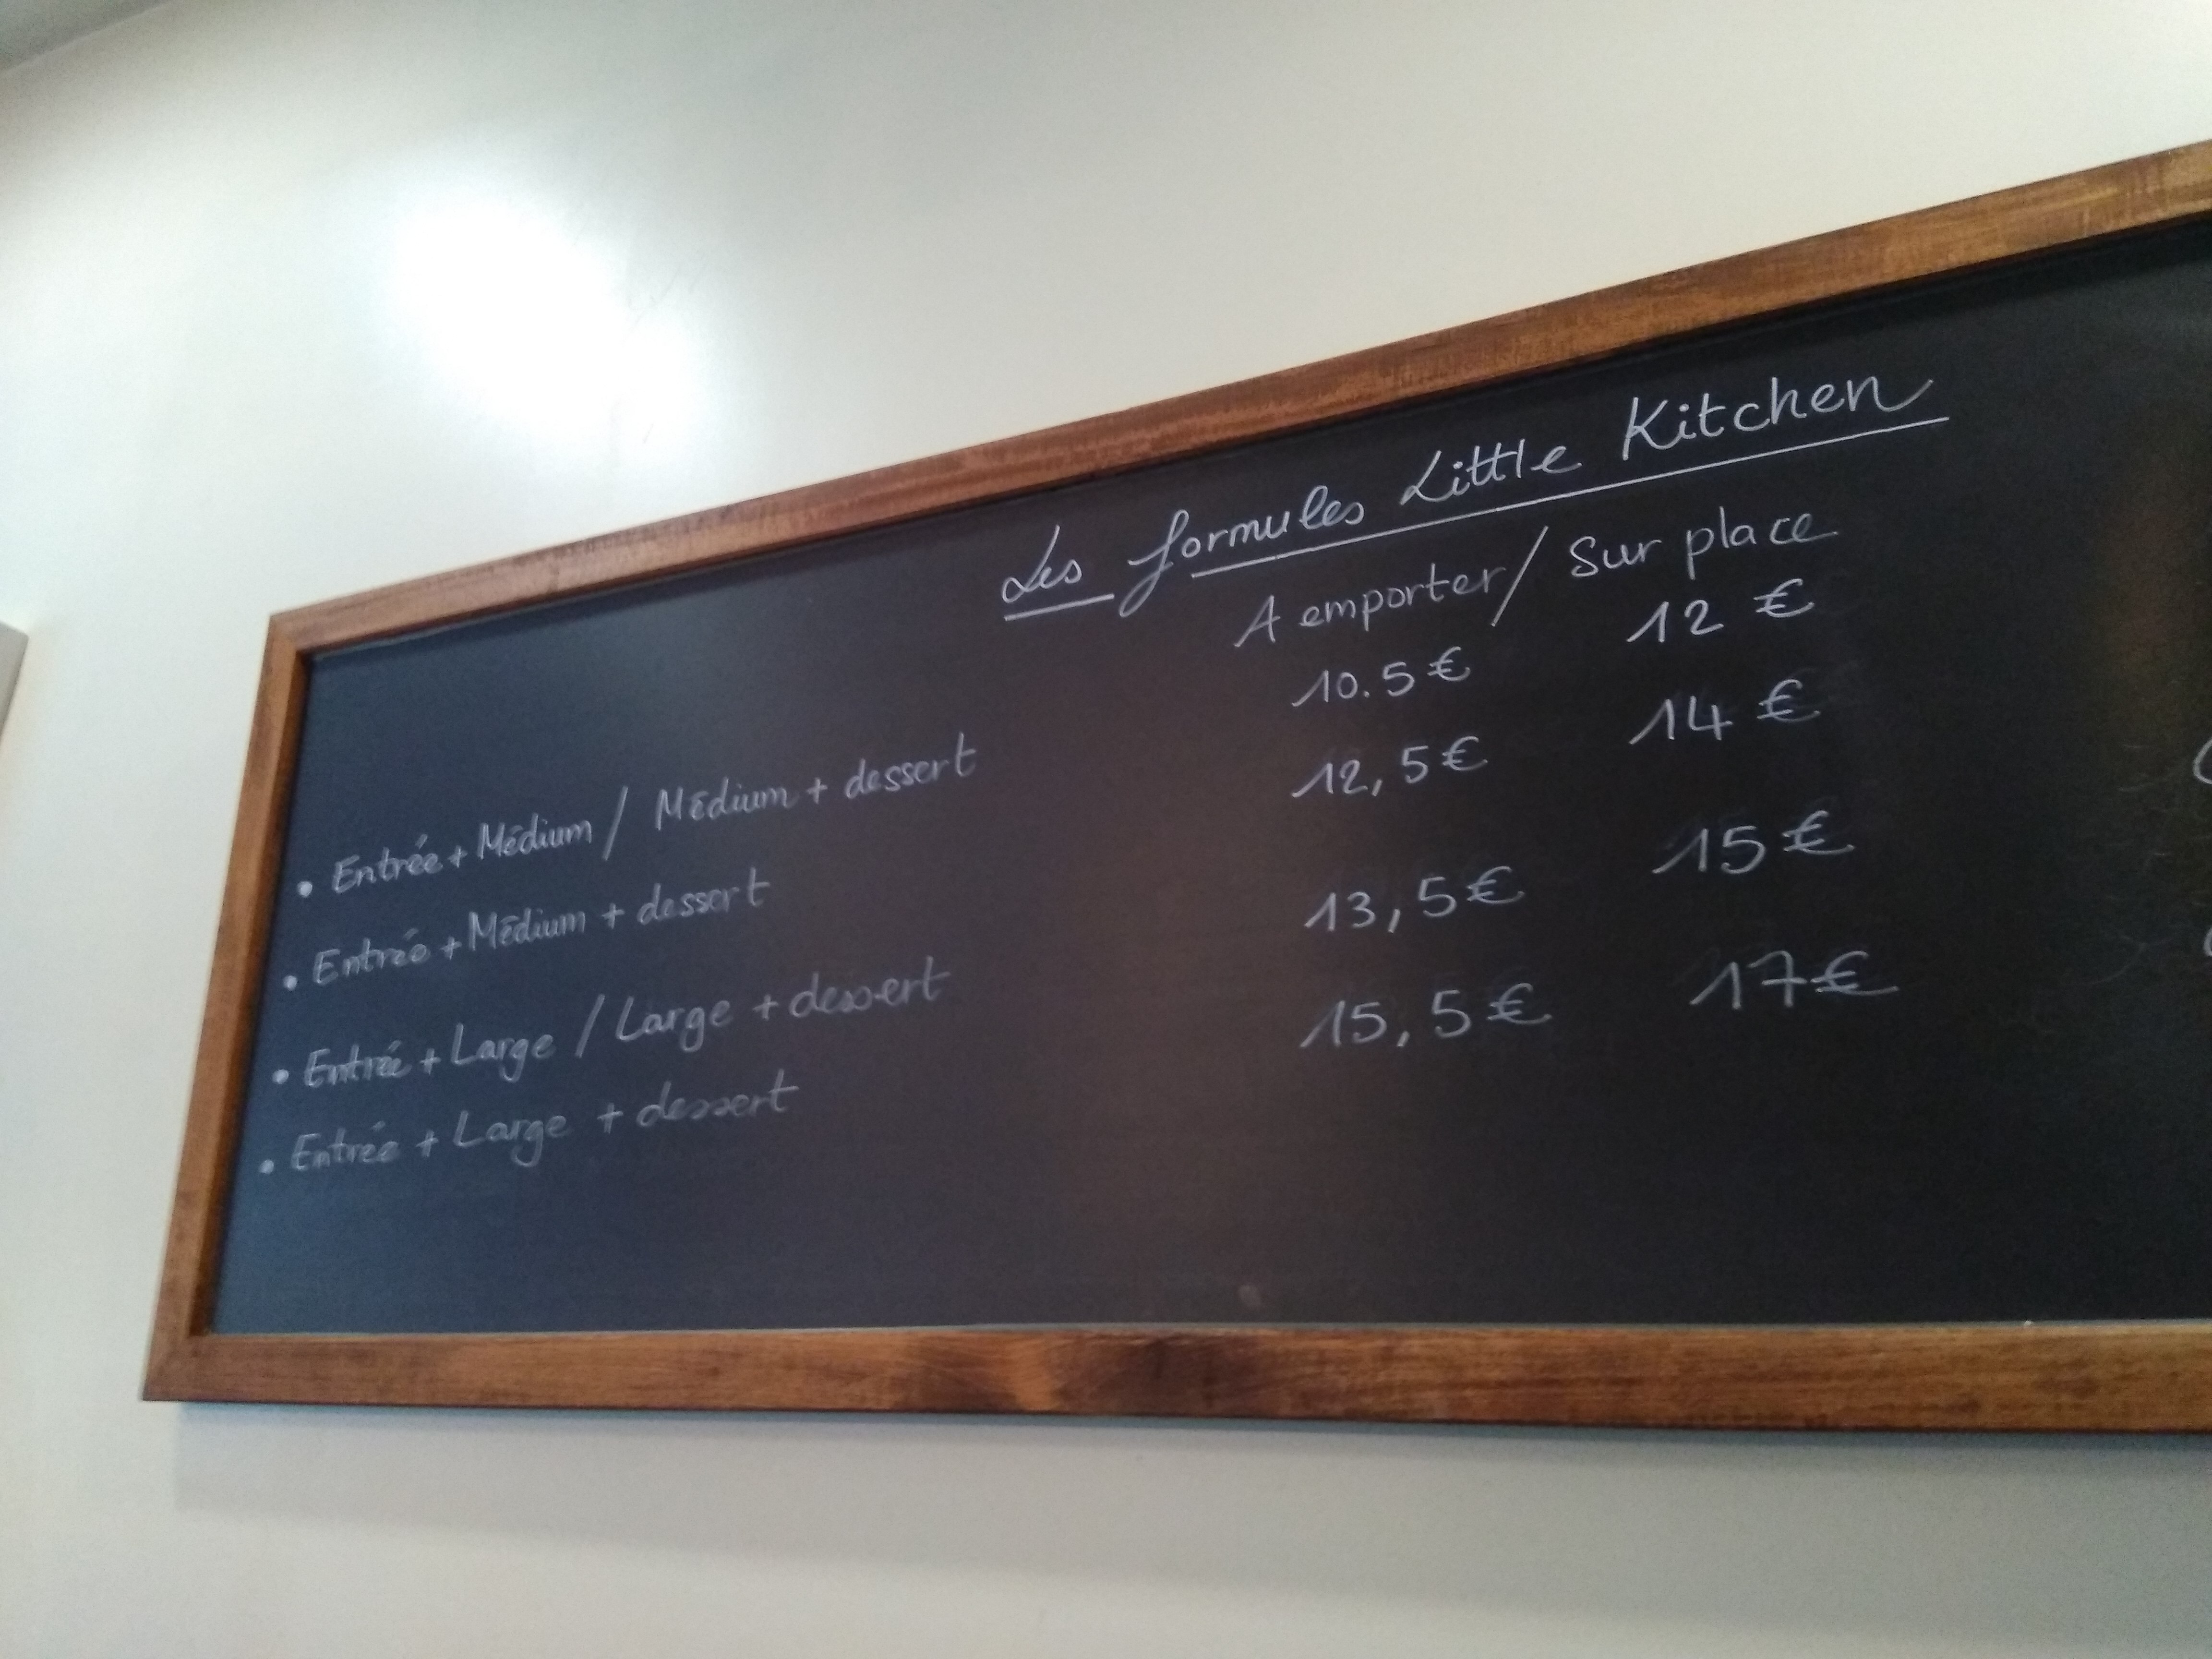 Les formules Little Kitchen
A emporter / Sur place
• Entrée + Médium / Médium + dessert 10.5 € 12 €
• Entrée + Médium + dessert 12,5 € 14 €
• Entrée + Large / Large + dessert 13,5 € 15 €
• Entrée + Large + dessert 15,5 € 17 €